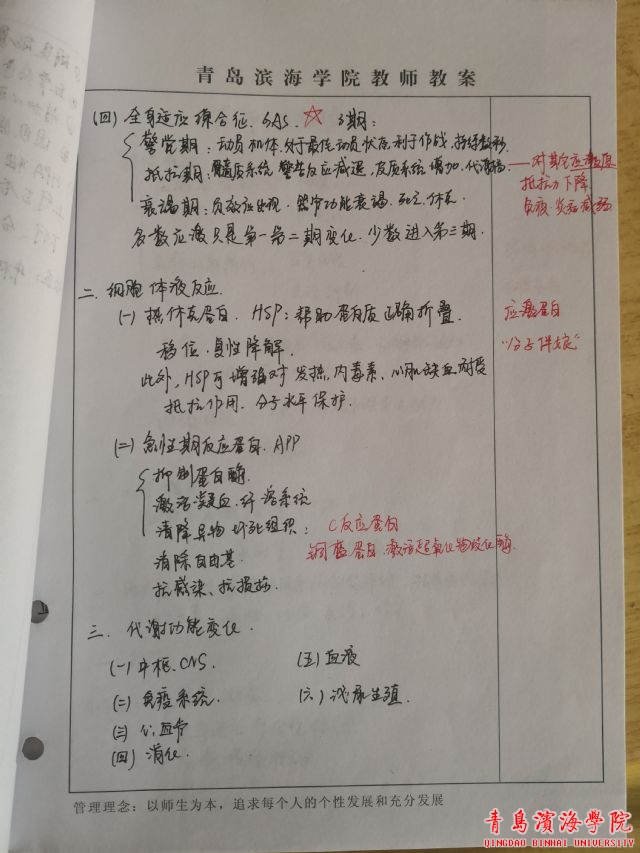 青岛滨海学院教师教案
(四) 全身适应综合征. GAS. ☆ 3期:
警觉期: 动员机体. 处于最佳动员状态, 利于作战, 持续数秒.
抵抗期: 髓质系统 警告反应减退, 皮质系统 增加. 代谢
——对其它应激原
抵抗力下降
免疫 炎症减弱
衰竭期: 负效应出现. 器官功能衰竭. 死亡. 休克
多数应激只是第一第二期变化. 少数进入第三期.
二. 细胞 体液反应.
(一) 热休克蛋白. HSP: 帮助蛋白质正确折叠.
移位. 复性降解.
应激蛋白
"分子伴娘"
此外, HSP可增强对 发热, 内毒素、心肌缺血 耐受
抵抗作用. 分子水平保护.
(二) 急性期反应蛋白. APP
抑制蛋白酶.
激活凝血. 纤溶系统
清除异物 坏死组织: C反应蛋白
清除自由基. 铜蓝蛋白. 激活超氧化物歧化酶.
抗感染、抗损伤.
三. 代谢功能变化.
(一) 中枢. CNS. (五) 血液
(二) 免疫系统. (六) 泌尿生殖.
(三) 心血管
(四) 消化.
管理理念: 以师生为本, 追求每个人的个性发展和充分发展
青岛滨海学院
QINGDAO BINHAI UNIVERSITY